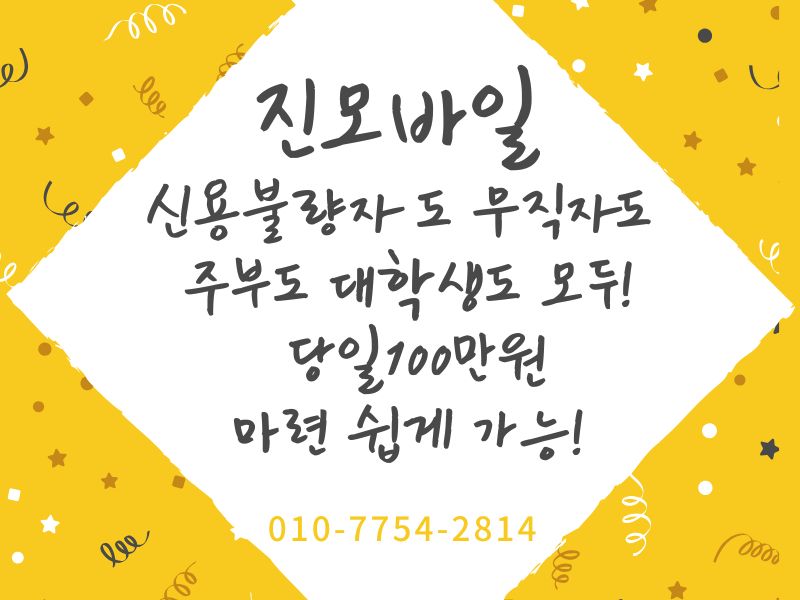 진모바일
신용불량자도 무직자도
주부도 대학생도 모두!
당일100만원
마련 쉽게 가능!
010-7754-2814